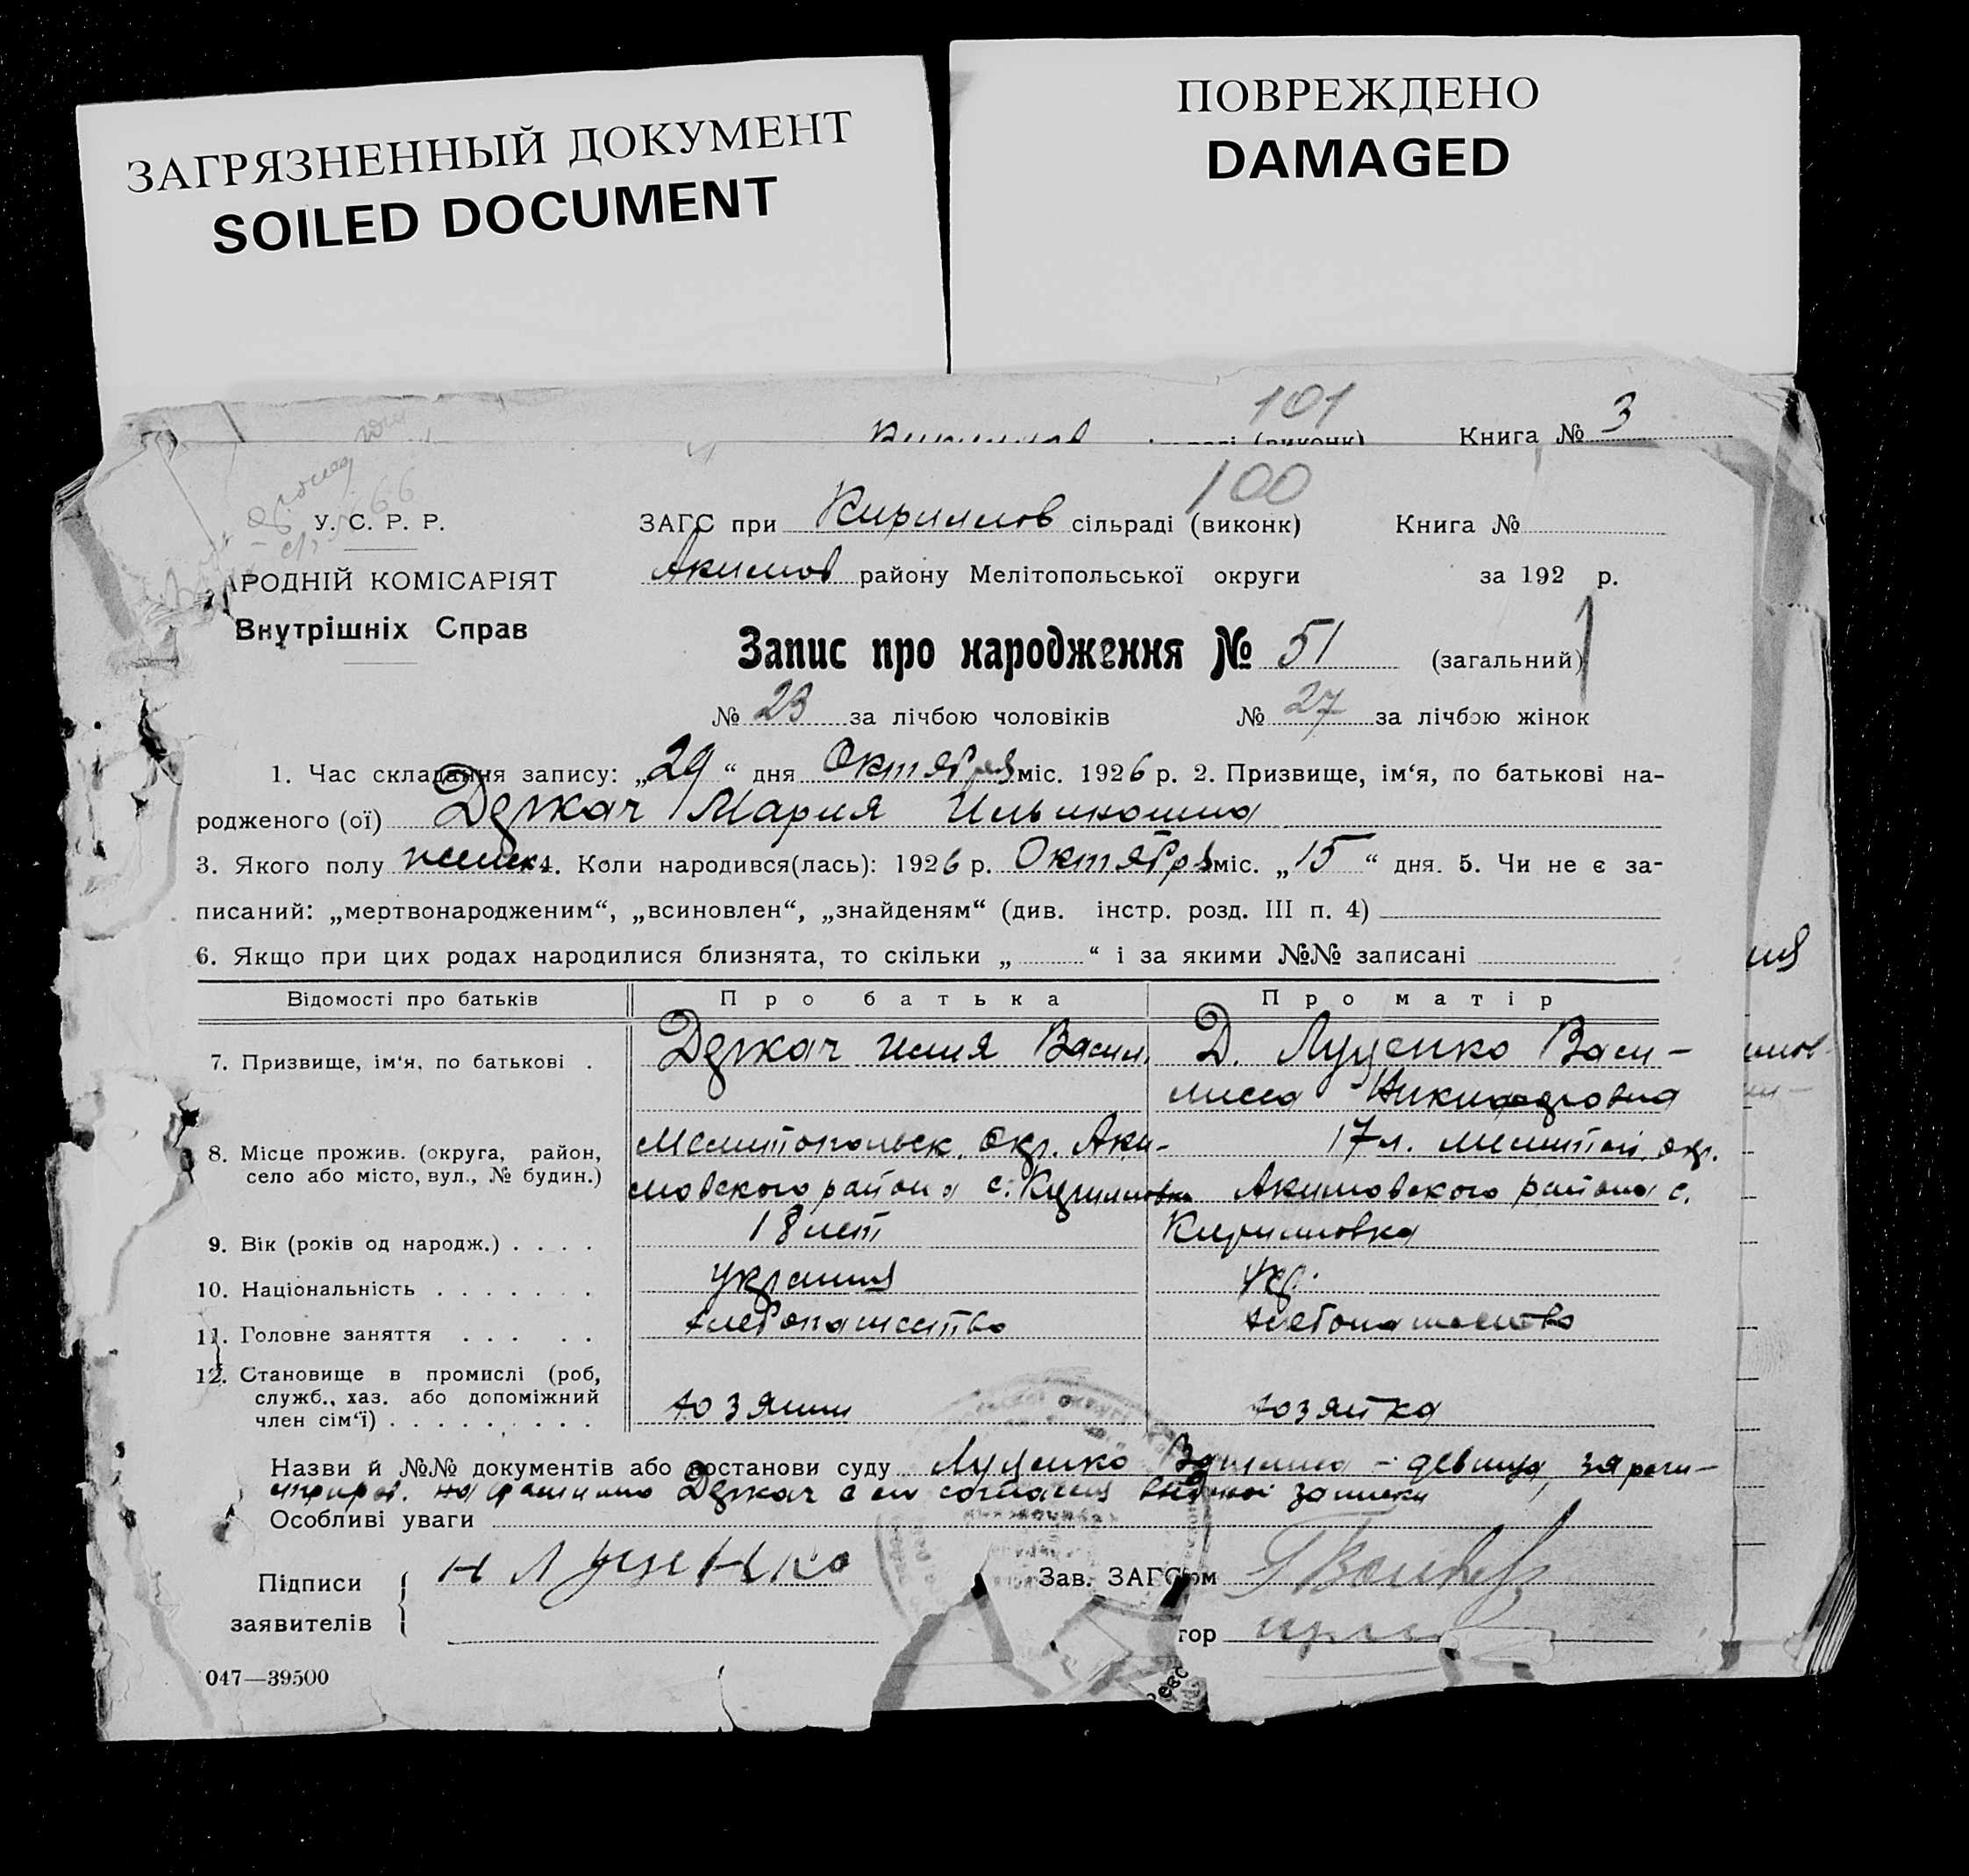 ЗАГРЯЗНЕННЫЙ ДОКУМЕНТ
SOILED DOCUMENT
ПОВРЕЖДЕНО
DAMAGED
101
(виконк) Книга № 3
100
У. С. Р. Р.
ЗАГС при Кириллов сільраді (виконк) Книга №
АРОДНІЙ КОМІСАРІЯТ
Акимов району Мелітопольської округи за 192 р.
Внутрішніх Справ
Запис про народження № 51 (загальний)
№ 23 за лічбою чоловіків № 27 за лічбою жінок
1. Час складання запису: „29“ дня Октября міс. 1926 р. 2. Призвище, ім‘я, по батькові на-
родженого (ої) Держач Мария Ильиношна
3. Якого полу женск 4. Коли народився(лась): 1926 р. Октября міс. „15“ дня. 5. Чи не є за-
писаний: „мертвонародженим“, „всиновлен“, „знайденям“ (див. інстр. розд. III п. 4)
6. Якщо при цих родах народилися близнята, то скільки „ “ і за якими №№ записані
Відомості про батьків Про батька Про матір
7. Призвище, ім‘я, по батькові . Держач Илия Васил. Д. Луценко Васи-
лисса Никандровна
8. Місце прожив. (округа, район, Мелитопольск. окр. Аки- 17 л. Мелитоп. окр.
село або місто, вул., № будин.) мовского района с. Кирилловка Акимовского района с.
9. Вік (років од народж.) . . . . 18 лет Кирилловка
10. Національність . . . . . . . украинц укр.
11. Головне заняття . . . . . хлебопашество хлебопашество
12. Становище в промислі (роб,
служб., хаз. або допоміжний
член сім‘ї) . . . . . . . . . хозяин хозяйка
Назви й №№ документів або постанови суду Луценко Василиса - девица, зареги-
Держач с ея согласия записки
Особливі уваги
Підписи
заявителів
Н Луценко
Зав. ЗАГС‘ом
тор
047—39500